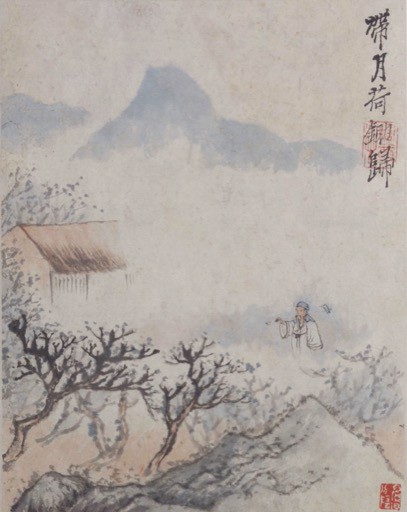 帶月荷鋤歸